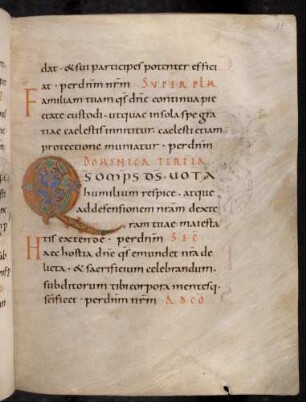 dat · & sui participes potenter effici
at · perdnm nrm SUPER PLM
Familiam tuam qs dne continua pie
tate custodi · ut quae in sola spe gra
tiae caelestis innititur · caelesti etiam
protectione muniatur · perdnm
DOMINICA TERTIA
QSOMPS DS · UOTA
humilium respice · atque
ad defensionem nram dexte
ram tuae maiesta
tis extende · perdnm SEC
Haec hostia dne qs emundet nra de
licta · & sacrificium celebrandum ·
subditorum tibi corpora mentesq;
scificet · perdnm nrm AD CO